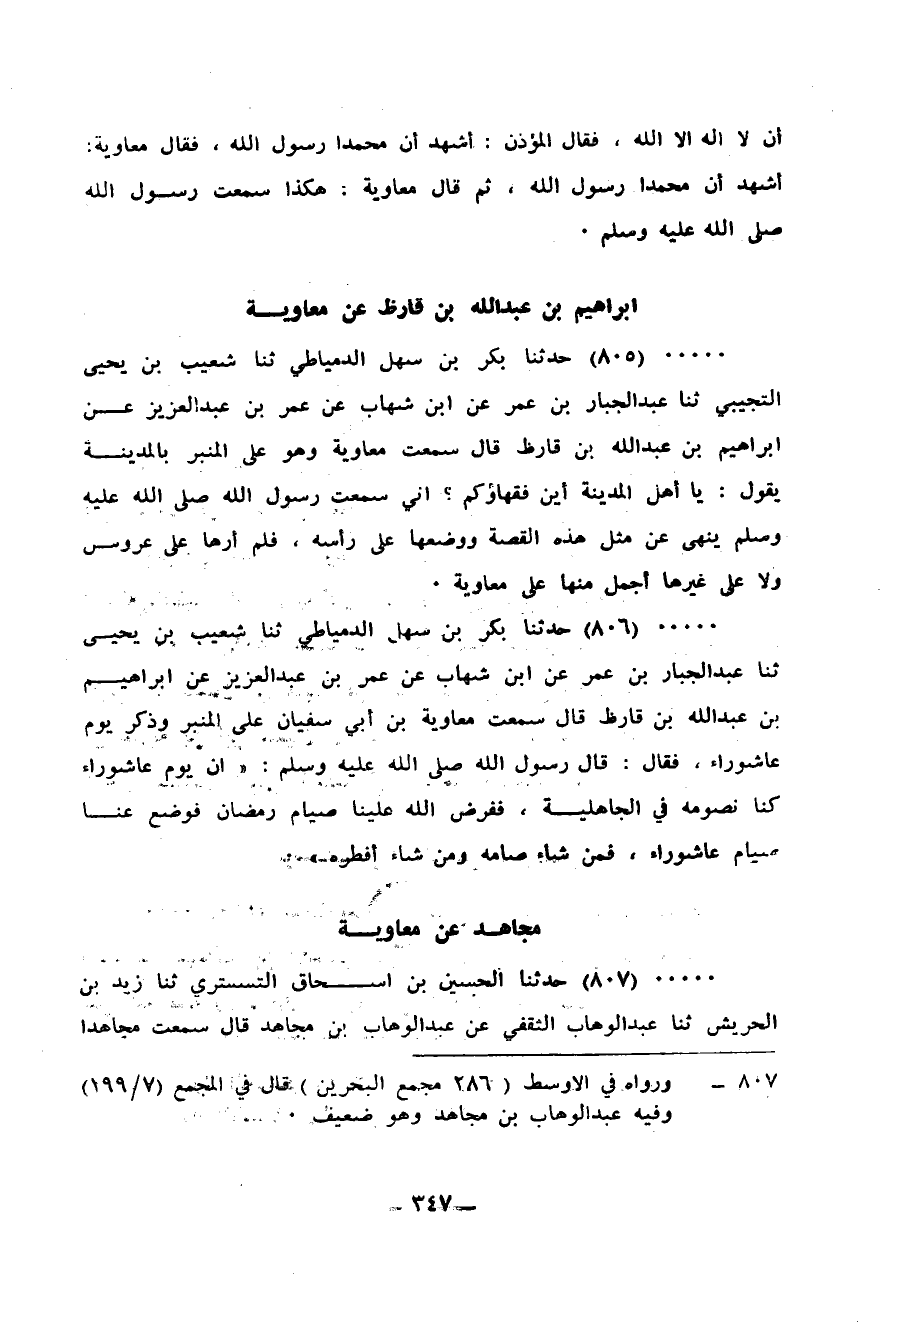 أن لا اله الا الله ، فقال المؤذن : أشهد أن محمدا رسول الله ، فقال معاوية:
أشهد أن محمدا رسول الله ، ثم قال معاوية : هكذا سمعت رسول الله
صلى الله عليه وسلم ٠
ابراهيم بن عبدالله بن قارظ عن معاوية
٠٠٠٠٠ (٨٠٥) حدثنا بكر بن سهل الدمياطي ثنا شعيب بن يحيى
التجيبي ثنا عبدالجبار بن عمر عن ابن شهاب عن عمر بن عبدالعزيز عن
ابراهيم بن عبدالله بن قارظ قال سمعت معاوية وهو على المنبر بالمدينة
يقول : يا أهل المدينة أين فقهاؤكم ؟ اني سمعت رسول الله صلى الله عليه
وسلم ينهى عن مثل هذه القصة ووضعها على رأسه ، فلم أرها على عروس
ولا على غيرها أجمل منها على معاوية ٠
٠٠٠٠٠ (٨٠٦) حدثنا بكر بن سهل الدمياطي ثنا شعيب بن يحيى
ثنا عبدالجبار بن عمر عن ابن شهاب عن عمر بن عبدالعزيز عن ابراهيم
بن عبدالله بن قارظ قال سمعت معاوية بن أبي سفيان على المنبر وذكر يوم
عاشوراء ، فقال : قال رسول الله صلى الله عليه وسلم : « ان يوم عاشوراء
كنا نصومه في الجاهلية ، ففرض الله علينا صيام رمضان فوضع عنا
صيام عاشوراء ، فمن شاء صامه ومن شاء أفطره
مجاهد عن معاوية
٠٠٠٠٠ (٨٠٧) حدثنا الحسين بن اسحاق التستري ثنا زيد بن
الحريش ثنا عبدالوهاب الثقفي عن عبدالوهاب بن مجاهد قال سمعت مجاهدا
٨٠٧ – ورواه في الاوسط ( ٢٨٦ مجمع البحرين ) قال في المجمع (١٩٩/٧)
وفيه عبدالوهاب بن مجاهد وهو ضعيف ٠
– ٣٤٧ –